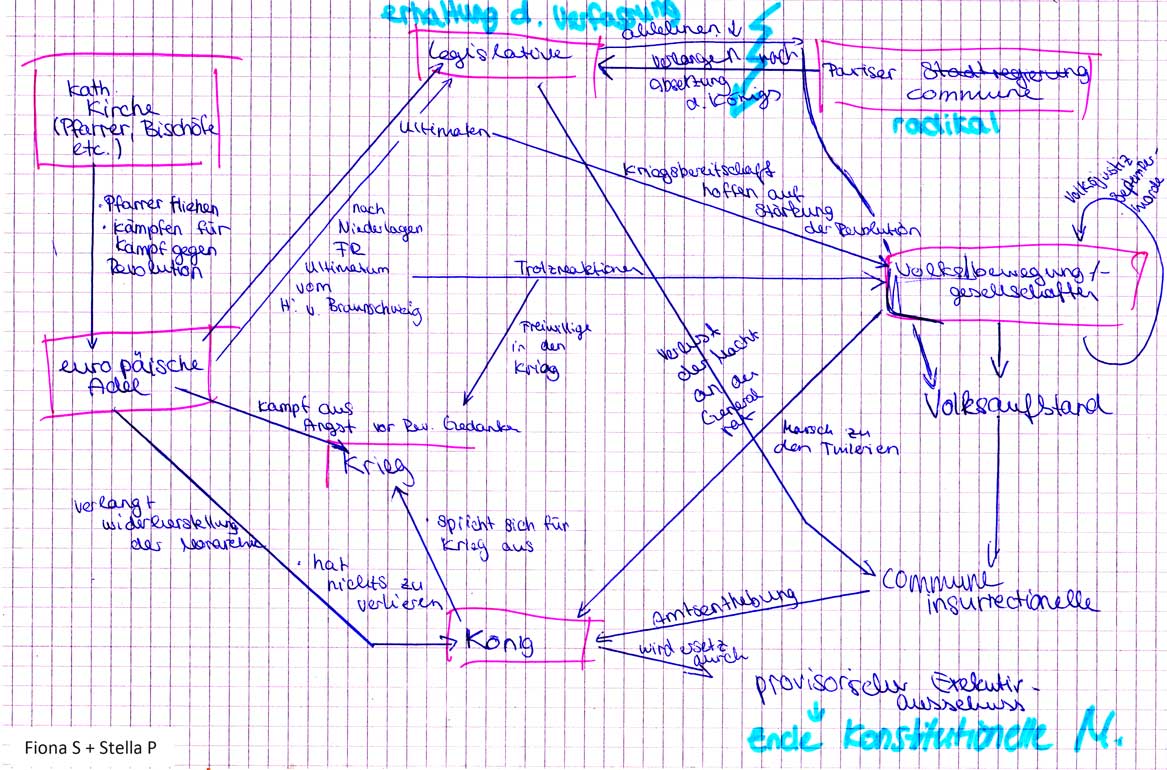 erhaltung d. Verfassung
Legislative
ablehnen
verlangen nach
absetzung
d. Königs
Pariser Stadtregierung
commune
radikal
kath.
Kirche
(Pfarrer, Bischöfe
etc.)
Ultimaten
Kriegsbereitschaft
hoffen auf
Stärkung
der Revolution
Volksjustiz
September-
morde
• Pfarrer fliehen
• kämpfen für
Kampf gegen
Revolution
nach
Niederlagen
FR
Ultimatum
vom
H. v. Braunschweig
Trotzreaktionen
Volksbewegung/-
gesellschaften
Freiwillige
in den
Krieg
Verlust
der Macht
an den
General
rat
europäische
Adel
Volksaufstand
kampf aus
Angst vor Rev. Gedanken
Marsch zu
den Tuilerien
Krieg
verlangt
widerherstellung
der Monarchie
• spricht sich für
Krieg aus
• hat
nichts zu
verlieren
commune
insurrectionelle
Amtsenthebung
König
wird ersetz
durch
provisorischer Exekutiv-
ausschuss
Ende Konstitutionelle M.
Fiona S + Stella P